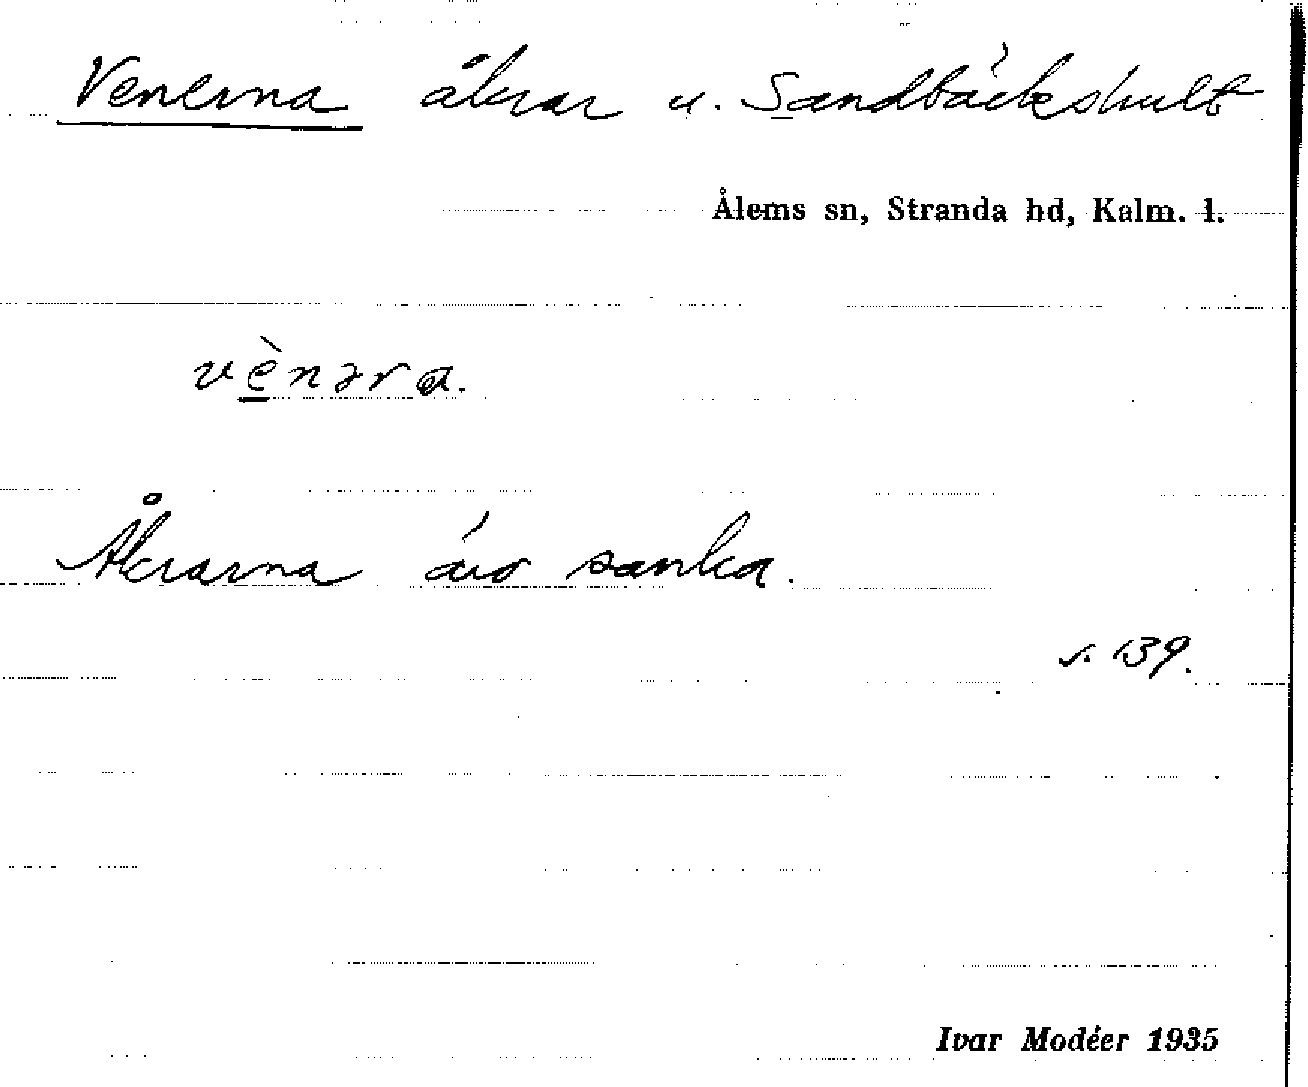 Venerna åkrar u. Sandbäckshult
Ålems sn, Stranda hd, Kalm. l.
vènəra.
Åkrarna äro sanka.
s. 139.
Ivar Modéer 1935